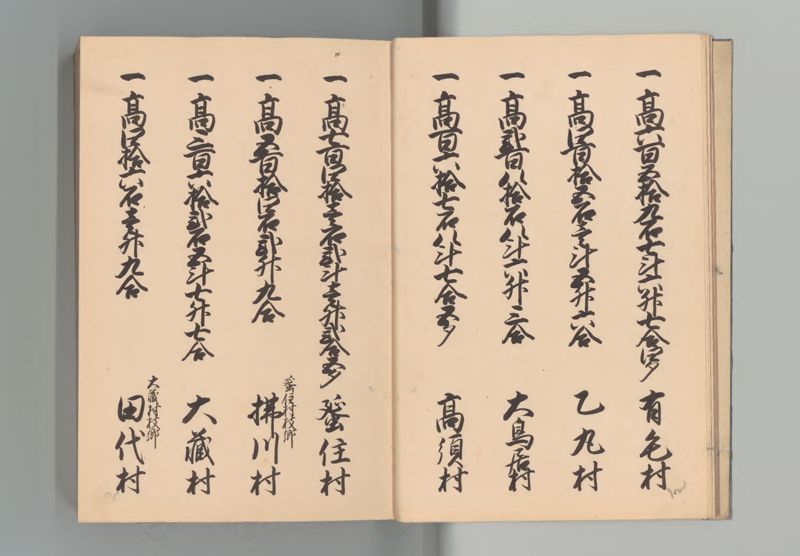 一高六百五拾九石七斗六升七合四夕 有毛村
一高四百拾五石三斗五升六合 乙丸村
一高弐百八拾石八斗六升三合 大鳥居村
一高百六拾七石八斗七合五夕 高須村
一高七百四拾三石弐斗壱升弐合五夕 蜑住村
蜑住村枝郷
一高五百拾四石弐升九合 拂川村
一高三百六拾弐石五斗七升七合 大藏村
大藏村枝郷
一高四拾六石壱升九合 田代村